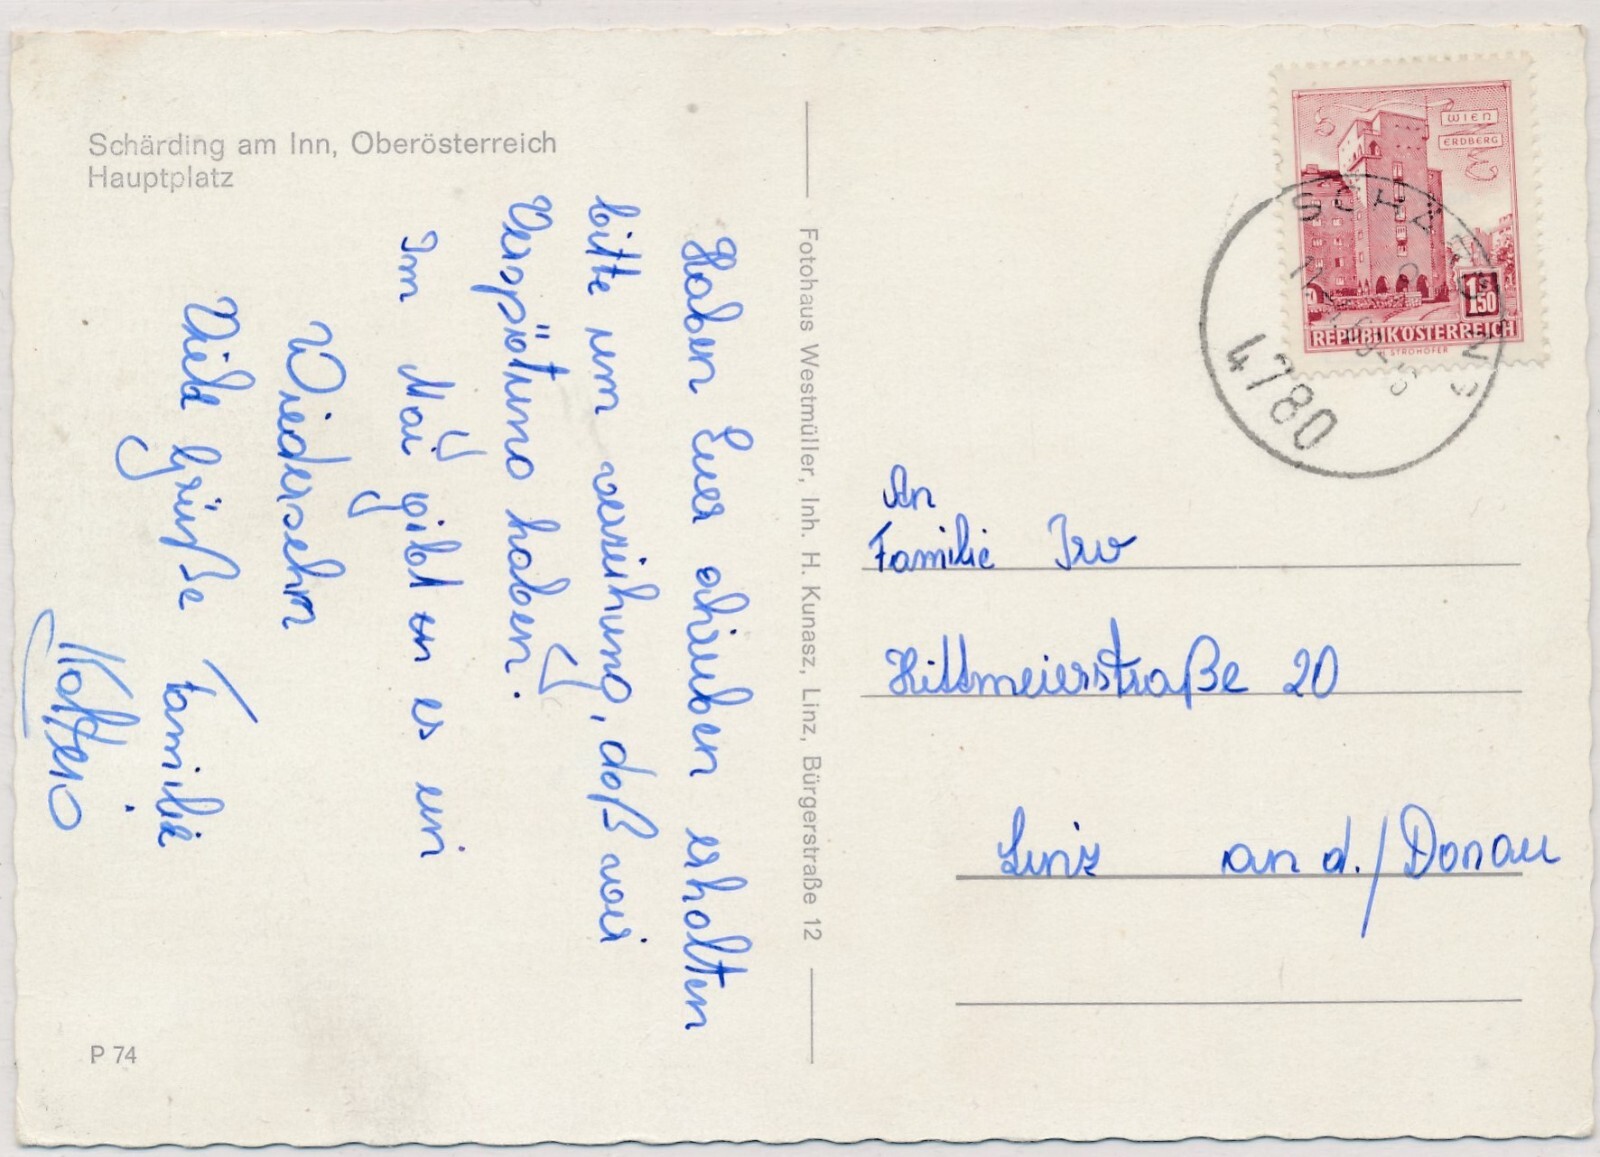 Schärding am Inn, Oberösterreich
Hauptplatz
Haben Euer schreuben erhalten
bitte um verzeihung, daß wir
Verspätung haben.
Im Mai gibt en es ein
Wiedersehn
Viele Grüße Familie
Fotohaus Westmüller, Inh. H. Kunasz, Linz, Bürgerstraße 12
P 74
WIEN
ERDBERG
S
1.50
REPUBLIK ÖSTERREICH
STROHOFER
SCHÄRDING
4780
An
Familie Irw
Hittmeierstraße 20
Linz an d./Donau